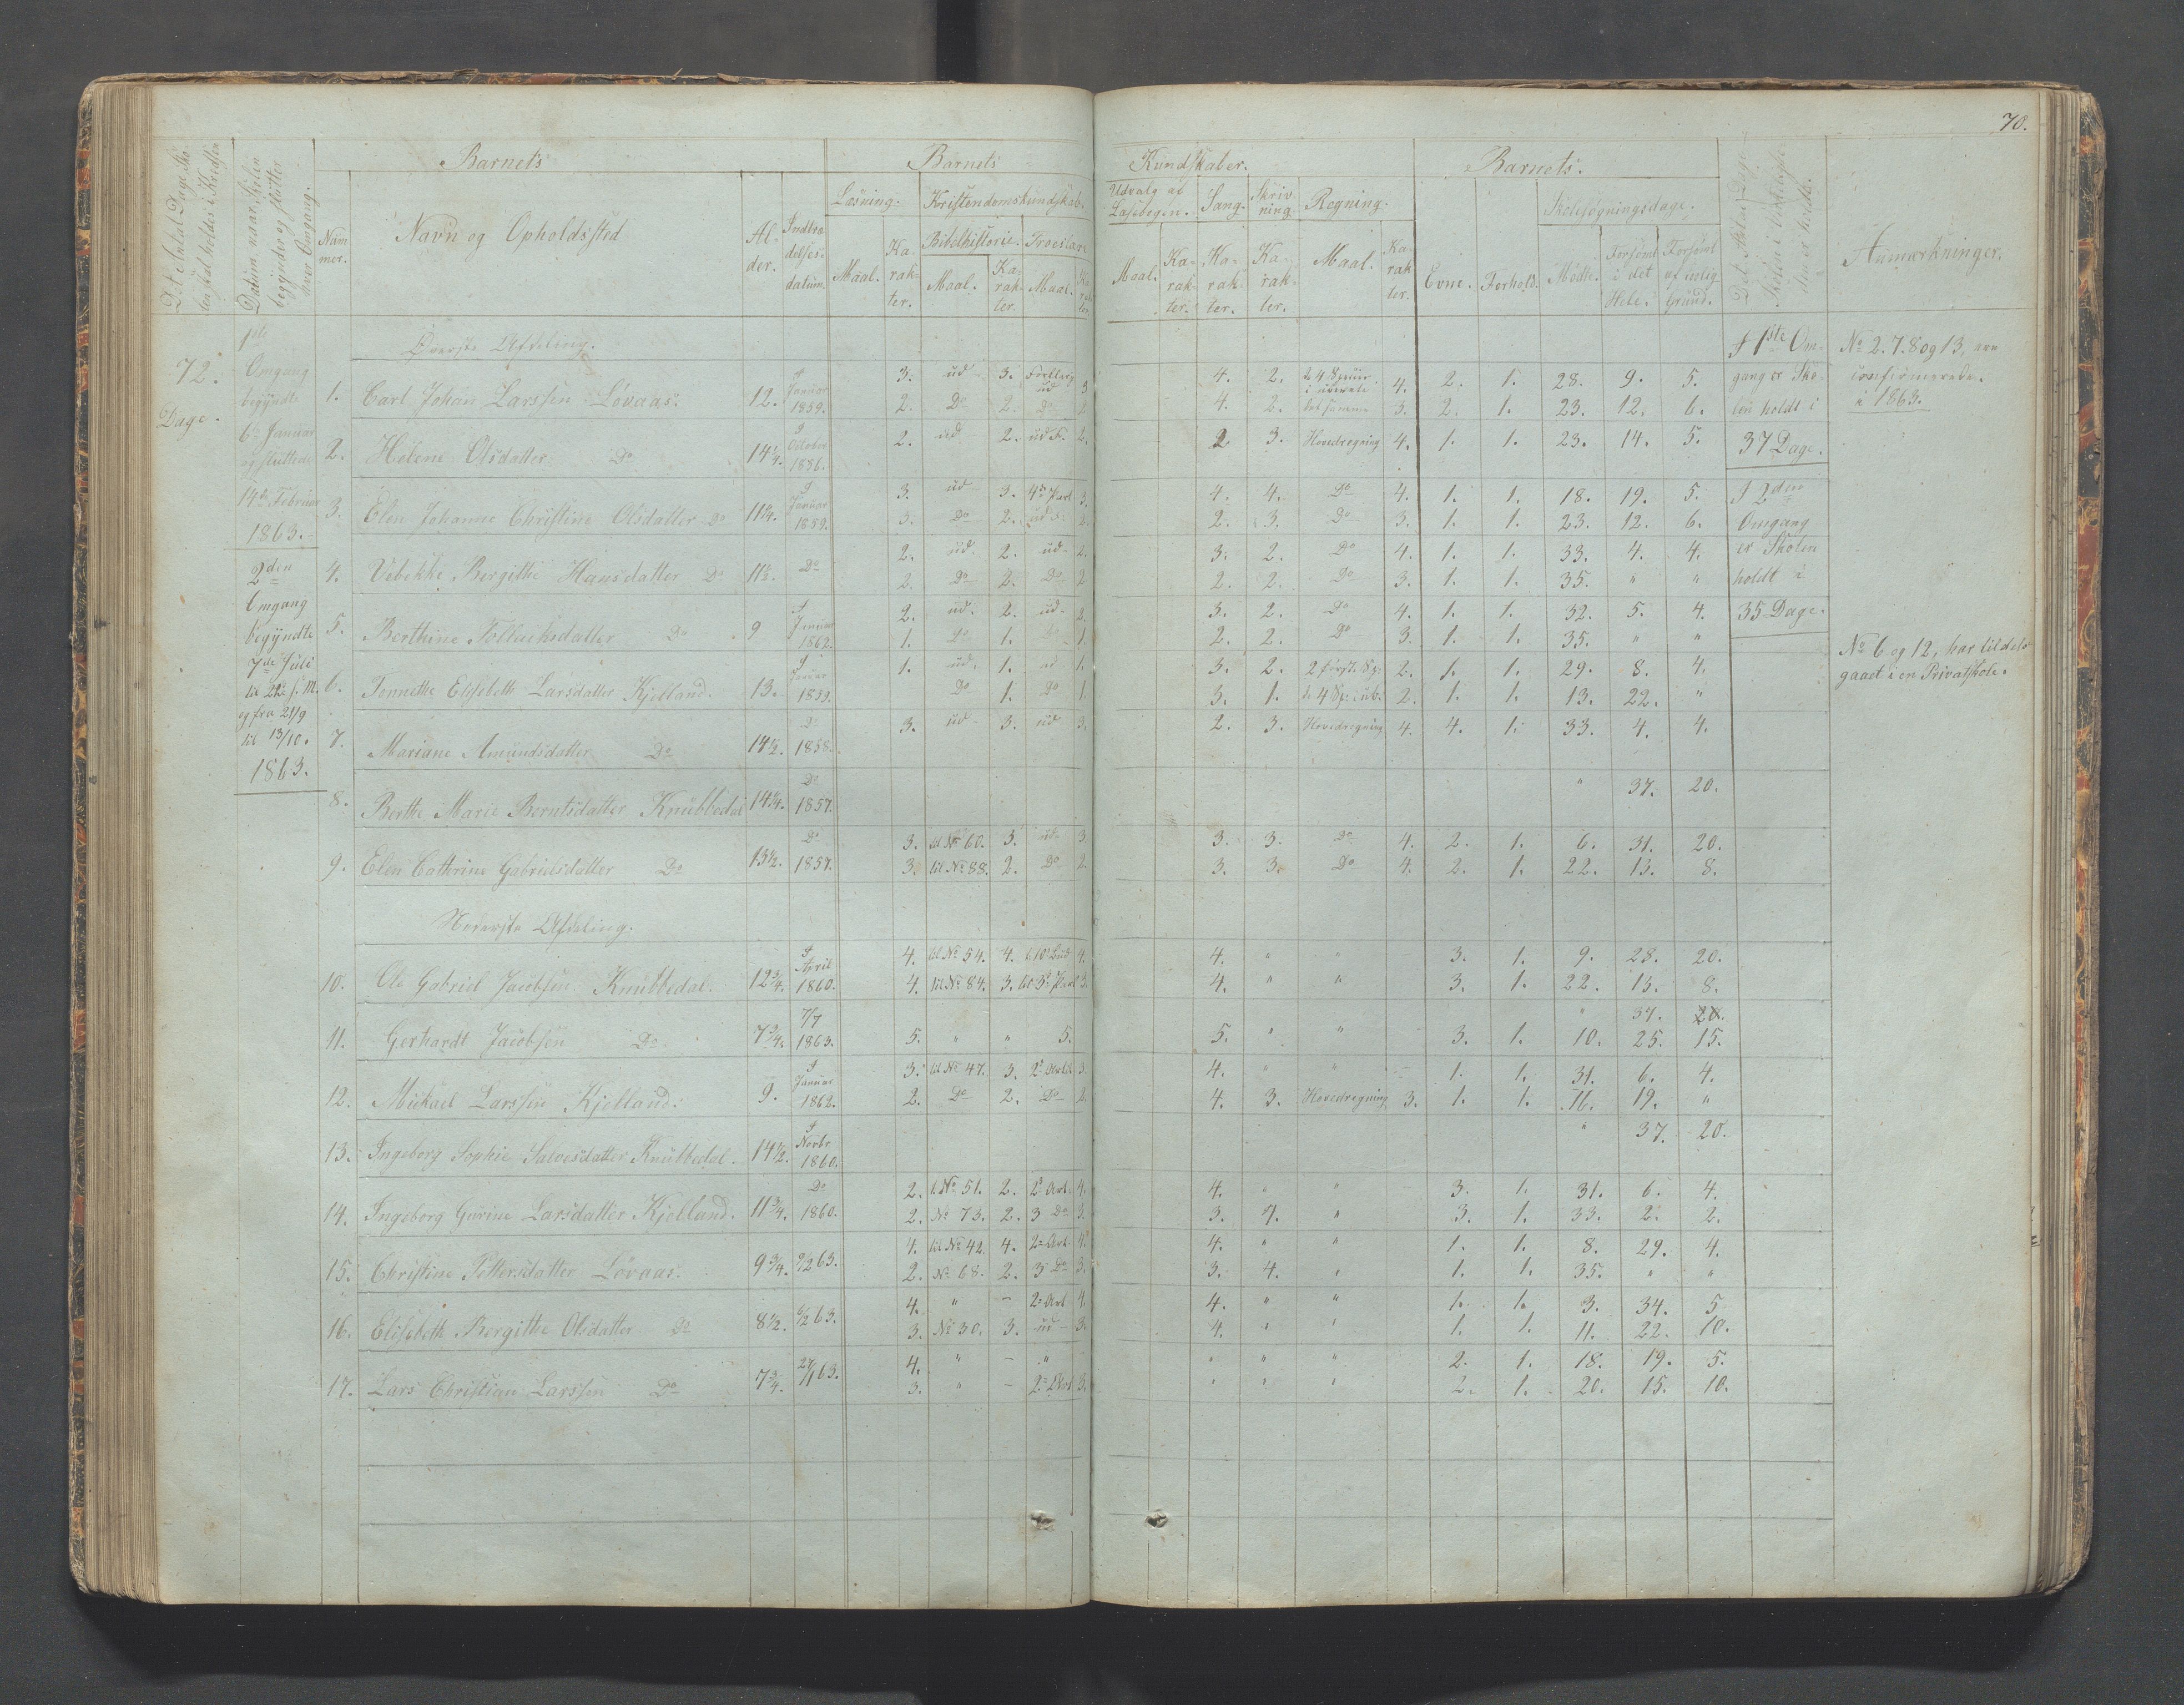 70.
Det Antal Dage Sko-
len skal holdes i Kredsen
Datum, naar Skolen
begynder og slutter
hver Omgang.
Barnets
Barnets
Kundskaber.
Barnets
Num
mer.
Navn og Opholdssted
Al-
der.
Indtræ
delses-
datum.
Læsning.
Kristendomskundskab.
Udvalg af
Læsebogen.
Sang.
Skriv
ning.
Regning.
Skolesøgningsdage.
Bibelhistorie.
Troeslære
Maal.
Ka-
rak-
ter.
Maal.
Ka-
rak-
ter.
Maal.
Maal.
Ka-
rak-
ter.
Ka-
rak-
ter.
Ka-
rak-
ter.
Maal.
Ka-
rak
ter.
Evne.
Forhold.
Mødte.
Forsømt
i det
Hele.
Forsømt
af lovlig
Grund.
Anmærkninger.
72.
Dage.
1ste
Omgang
begyndte
6te Januar
og sluttede
14de Februar
1863.
2den
Omgang
begyndte
7de Juli
til 22de s. M.
og fra 21/9
til 13/10.
1863.
Øverste Afdeling.
1. Carl Johan Larssen Løvaas. 12. Januar 1859. 3. ud 3. ud 3 4. 2. 4. 2. 1. 28. 9. 5.
2. Do 2. Do 2 4. 2. det samme 3. 2. 1. 23. 12. 6.
2. Helene Olsdatter Do 14 1/4. October 1856. 2. ud 2. ud F. 2. 2 3. Hovedregning 4. 1. 1. 23. 14. 5.
3. Elen Johanne Christine Olsdatter Do 11 1/4. Januar 1859. 3. ud 3. 4de Part 3. 4. 4. Do 4. 1. 1. 18. 19. 5.
3. Do 2. 2. 2. 3. Do 3. 1. 1. 23. 12. 6.
4. Vebekke Bergithe Hansdatter Do 11 1/2. Do 2. ud. 2. ud 2. 3. 2. Do 4. 1. 1. 33. 4. 4.
2. Do 2. Do 2 2. 2. Do 3. 1. 1. 35. " "
5. Berthine Tollachsdatter Do 9 Januar 1862. 2. ud. 2. ud 2. 3. 2. Do 4. 1. 1. 32. 5. 4.
1. Do 1. Do 1. 2. 2. Do 3. 1. 1. 35. " "
6. Tonnethe Elisebeth Larsdatter Kjelland. 13. Januar 1859. 1. ud. 1. ud 1. 3. 2. 2 først. Sp: 2. 1. 1. 29. 8. 4.
Do 1. Do 1. 3. 1. de 4 Sp: i ub. 2. 1. 1. 13. 22. "
7. Mariane Amundsdatter Do 14 1/2. Do 1858. 3. ud 3. ud 3. 2. 3. Hovedregning 4. 4. 1. 33. 4. 4.
8. Berthe Marie Berntsdatter Knubbedal 14 3/4. Do 1857. " 37. 20.
9. Elen Cathrine Gabrielsdatter Do 13 1/2. Do 1857. 3. til No 60. 3. ud 3 3. 3. Do 4. 2. 1. 6. 31. 20.
3. til No 88. 2. Do 2. 3. 3. Do 4. 2. 1. 22. 13. 8.
Nederste Afdeling.
10. Ole Gabriel Jacobsen Knubbedal. 12 3/4. April 1860. 4. til No 54. 4. t. 10 Bud 4. 4. " " 3. 1. 9. 28. 20.
4. til No 84. 3. til 3d Part 3. 4. " " 3. 1. 22. 13. 8.
11. Gerhardt Jacobsen Do 7 3/4. 7/7 1863. " 37. 20.
5. " " 5. 5. " " 3. 1. 10. 25. 15.
12. Michael Larssen Kjelland. 9. Januar 1862. 3. til No 47. 3. 2d Artik 3. 4. " " 1. 1. 31. 6. 4.
2. Do 2. Do 2. 4. 3. Hovedregning 3. 1. 1. 16. 19. "
13. Ingeborg Sophie Salvesdatter Knubbedal. 14 1/2. Novbr 1860. " 37. 20.
14. Ingeborg Gurine Larsdatter Kjelland. 11 3/4. Do 1860. 2. t. No 51. 2. 2d Art. 4. 4. " " 3. 1. 31. 6. 4.
2. No 73. 2. 3 Do 3. 3. " 3. 1. 33. 2. 2.
15. Christine Pettersdatter Løvaas. 9 3/4. 9/2 63. 4. til No 42. 4. 2d Art. 4. 4. " " 1. 1. 8. 29. 4.
2. No 68. 2. 3 Do 3. 3. 4. " 1. 1. 35. " "
16. Elisebeth Bergithe Olsdatter Do 8 1/2. 6/2 63. 4. " – 2d Art 4. 4. " " 1. 1. 3. 34. 5
3. No 30. 3. ud 3. 4. " " 1. 1. 11. 22. 10.
17. Lars Christian Larssen Do 7 3/4. 27/1 63. 4. " – " " " " 2. 1. 18. 19. 5.
3. " – 2d Art 3. " " " 2. 1. 20. 15. 10.
I 1ste Om-
gang er Sko-
len holdt i
37 Dage.
I 2den
Omgang
er Skolen
holdt i
35 Dage.
No 2. 7. 8 og 13, ere
confirmerede
i 1863.
No 6 og 12, har tildels
gaaet i en Privatskole.